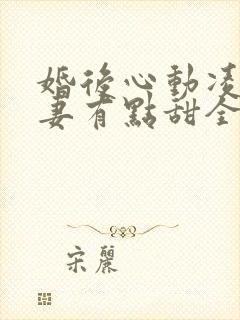 婚後心動凌
妻有點甜全
宋麗